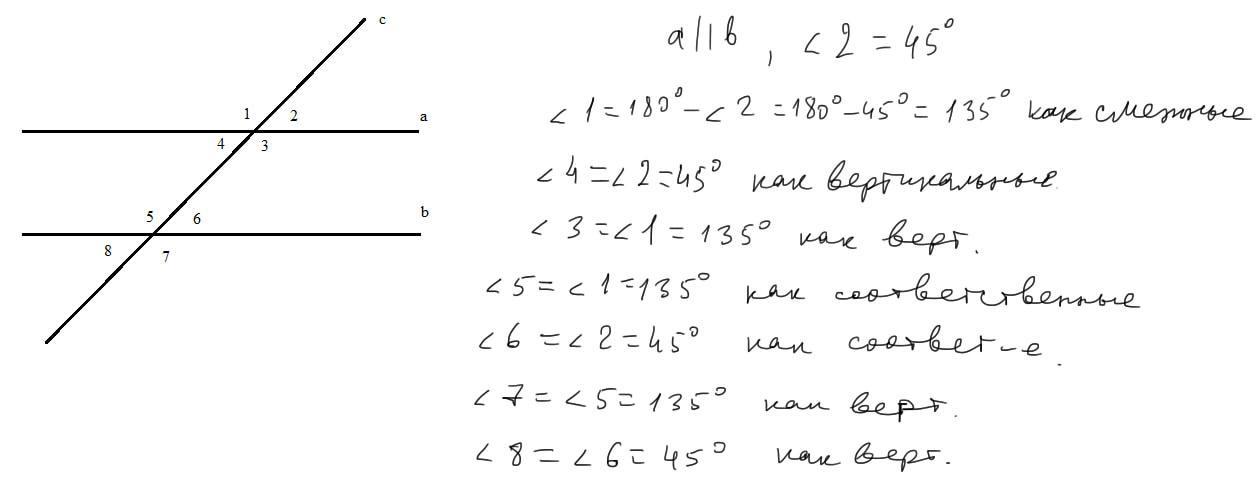 c
1 2 a
4 3
5 6 b
8 7
a||b, ∠2 = 45°
∠1 = 180° - ∠2 = 180° - 45° = 135° как смежные
∠4 = ∠2 = 45° как вертикальные.
∠3 = ∠1 = 135° как верт.
∠5 = ∠1 = 135° как соответственные
∠6 = ∠2 = 45° как соответ-е.
∠7 = ∠5 = 135° как верт.
∠8 = ∠6 = 45° как верт.